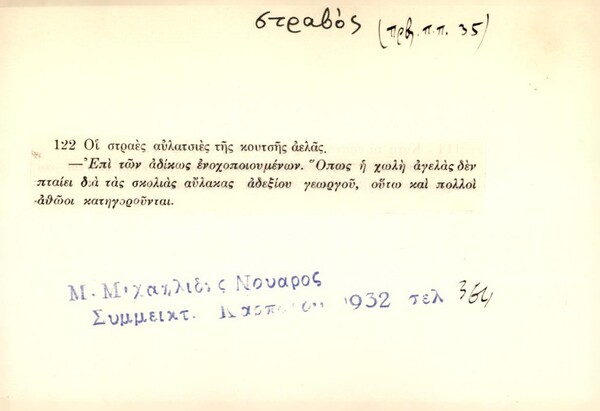 στραβός (πρβ. π.π. 35)
122 Οἱ στραὲς αὐλατσιὲς τῆς κουτσῆς ἀελᾶς.
—Ἐπὶ τῶν ἀδίκως ἐνοχοποιουμένων. Ὅπως ἡ χωλὴ ἀγελὰς δὲν
πταίει διὰ τὰς σκολιὰς αὔλακας ἀδεξίου γεωργοῦ, οὕτω καὶ πολλοὶ
ἀθῶοι κατηγοροῦνται.
Μ. Μιχαηλίδης Νουαρος
Συμμεικτ. Καρπάθου 1932 τελ 364